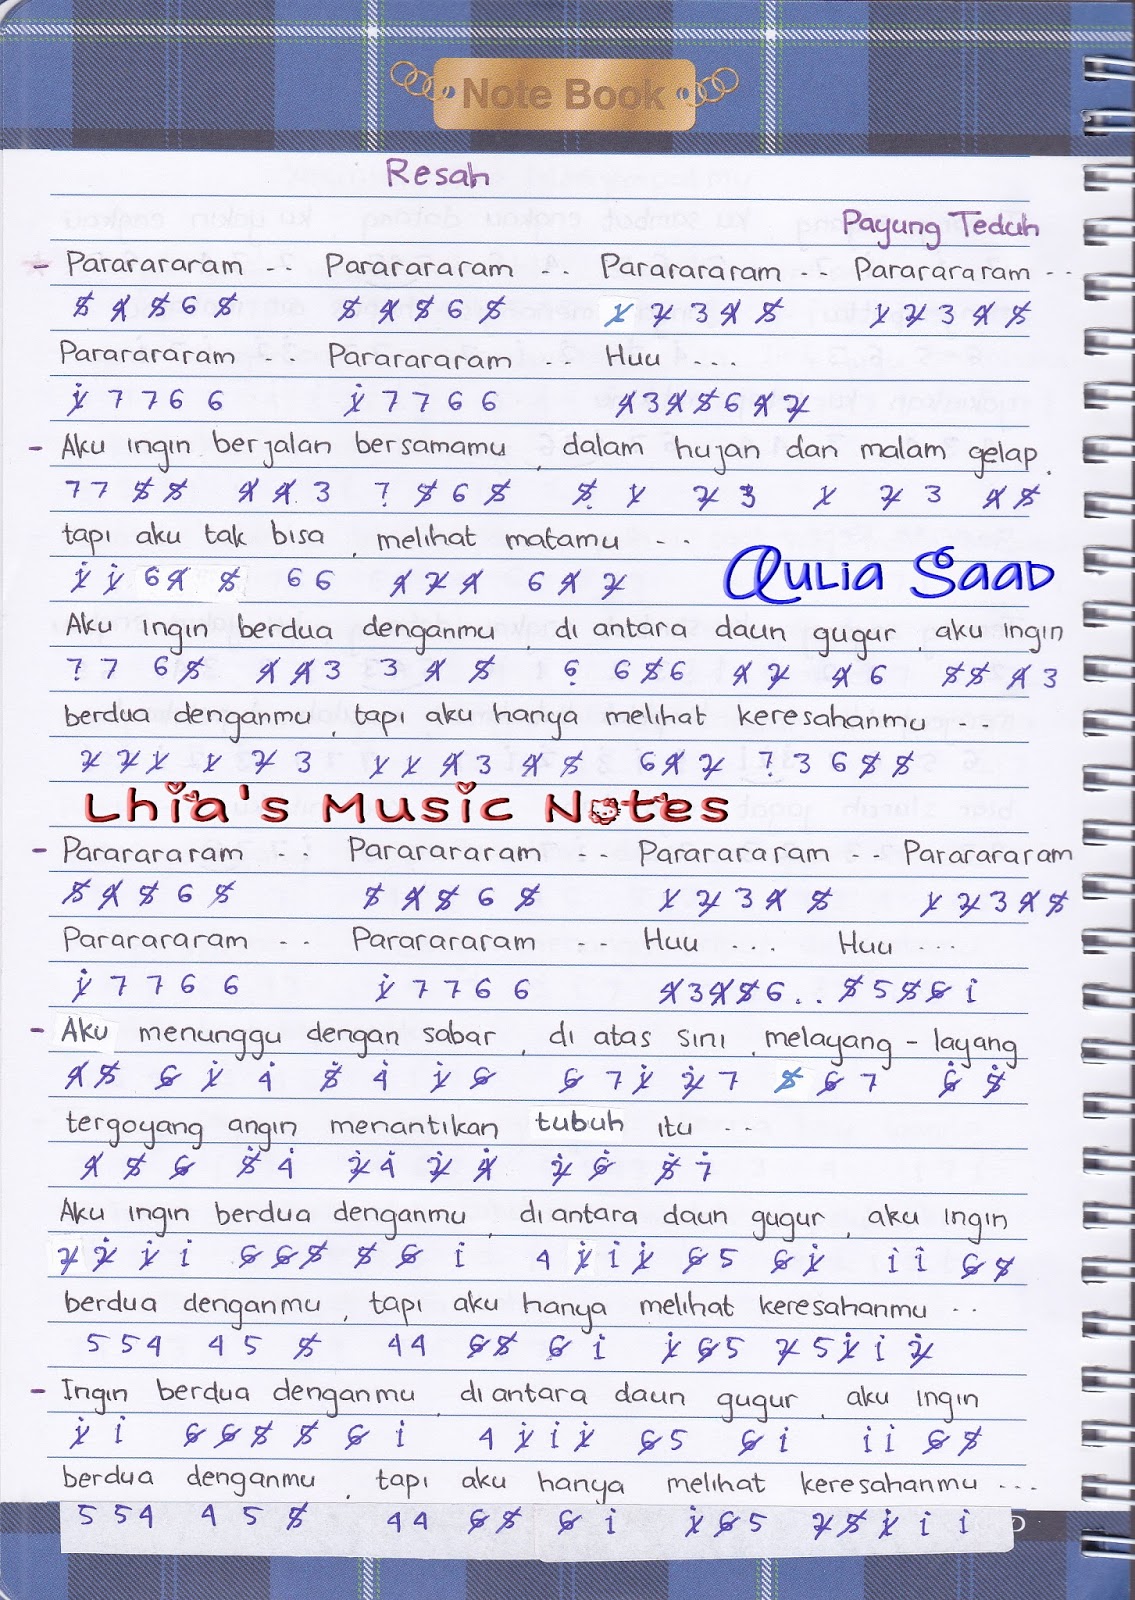 Note Book
Resah
Payung Teduh
- Parararararam .. Parararararam .. Parararararam .. Parararararam ..
5 4 5 6 5 5 4 5 6 5 1 2 3 4 5 1 2 3 4 5
Parararararam .. Parararararam .. Huu ...
1 7 7 6 6 1 7 7 6 6 4 3 4 5 6 4 2
- Aku ingin berjalan bersamamu, dalam hujan dan malam gelap.
7 7 5 5 4 4 3 7 5 6 5 5 1 2 3 1 2 3 4 5
tapi aku tak bisa, melihat matamu ...
1 1 6 4 5 6 6 4 2 4 6 4 2
Qulia Saad
Aku ingin berdua denganmu, di antara daun gugur, aku ingin
7 7 6 5 4 4 3 3 4 5 6 6 5 6 4 2 4 6 5 5 4 3
berdua denganmu, tapi aku hanya melihat keresahanmu ...
2 2 1 1 2 3 1 1 4 3 4 5 6 4 2 7 3 6 5 5
Lhia's Music Notes
- Parararararam .. Parararararam .. Parararararam .. Parararararam
5 4 5 6 5 5 4 5 6 5 1 2 3 4 5 1 2 3 4 5
Parararararam .. Parararararam .. Huu ... Huu ...
1 7 7 6 6 1 7 7 6 6 4 3 4 5 6 .. 5 5 5 6 1
- Aku menunggu dengan sabar, di atas sini, melayang - layang
4 5 6 1 4 5 4 1 6 6 7 1 2 7 5 6 7 6 5
tergoyang angin menantikan tubuh itu ..
4 5 6 5 4 2 4 2 4 2 6 5 7
Aku ingin berdua denganmu, di antara daun gugur, aku ingin
2 2 1 1 6 6 5 5 6 1 4 1 1 1 6 5 6 1 1 1 6 5
berdua denganmu, tapi aku hanya melihat keresahanmu ..
5 5 4 4 5 5 4 4 6 5 6 1 1 6 5 2 5 1 1 2
- Ingin berdua denganmu, di antara daun gugur, aku ingin
1 1 6 6 5 5 6 1 4 1 1 1 6 5 6 1 1 1 6 5
berdua denganmu, tapi aku hanya melihat keresahanmu ...
5 5 4 4 5 5 4 4 6 5 6 1 1 6 5 2 5 1 1 1